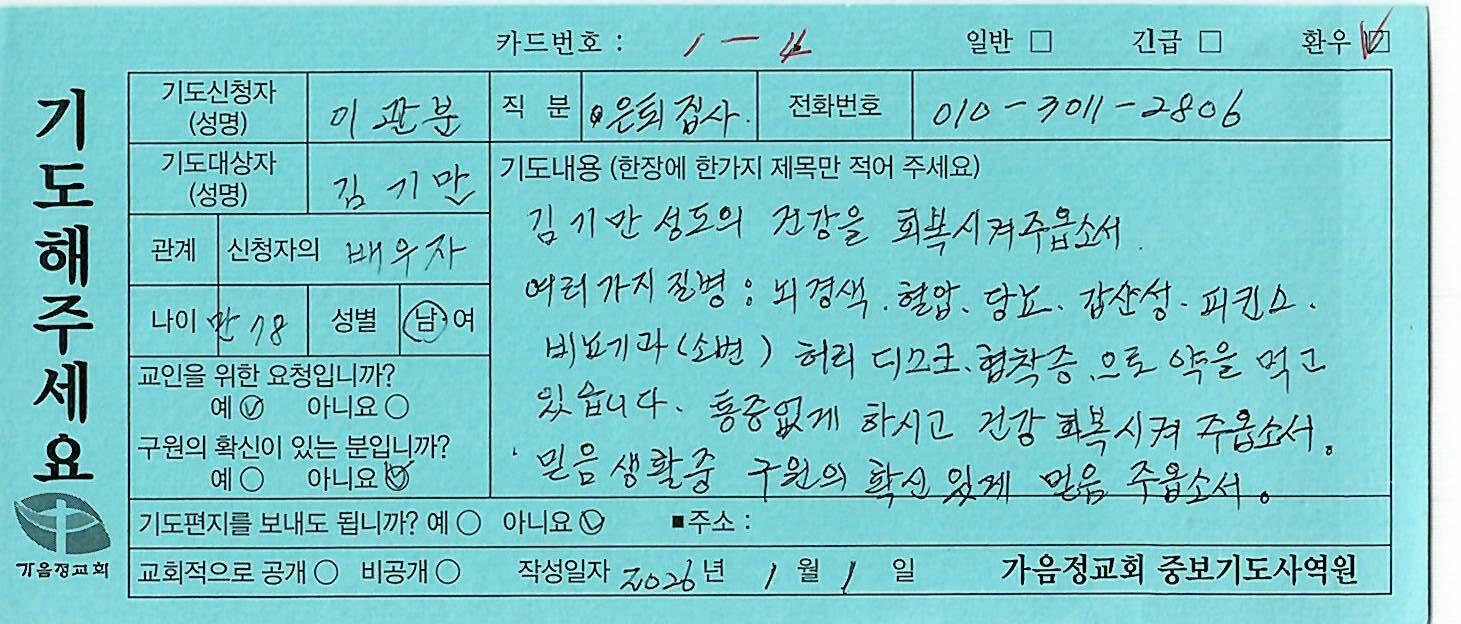 카드번호 : 1 - 4 일반 □ 긴급 □ 환우 ☑
기도해주세요
기도신청자 (성명) 이관분 직 분 은퇴집사. 전화번호 010-3011-2806
기도대상자 (성명) 김기만
관계 신청자의 배우자
나이 만78 성별 남 여
교인을 위한 요청입니까?
예 ✓ 아니요 ○
구원의 확신이 있는 분입니까?
예 ○ 아니요 ✓
기도내용 (한장에 한가지 제목만 적어 주세요)
김기만 성도의 건강을 회복시켜주옵소서.
여러가지 질병 : 뇌경색. 혈압. 당뇨. 갑산성. 피킨스.
비뇨기과(소변) 허리 디스크. 협착증.으로 약을 먹고
있습니다. 통증없게 하시고 건강 회복시켜 주옵소서.
믿음 생활중 구원의 확신 있게 믿음 주옵소서.
기도편지를 보내도 됩니까? 예 ○ 아니요 ✓ ■주소 :
교회적으로 공개 ○ 비공개 ○ 작성일자 2026 년 1 월 1 일 가음정교회 중보기도사역원
가음정교회